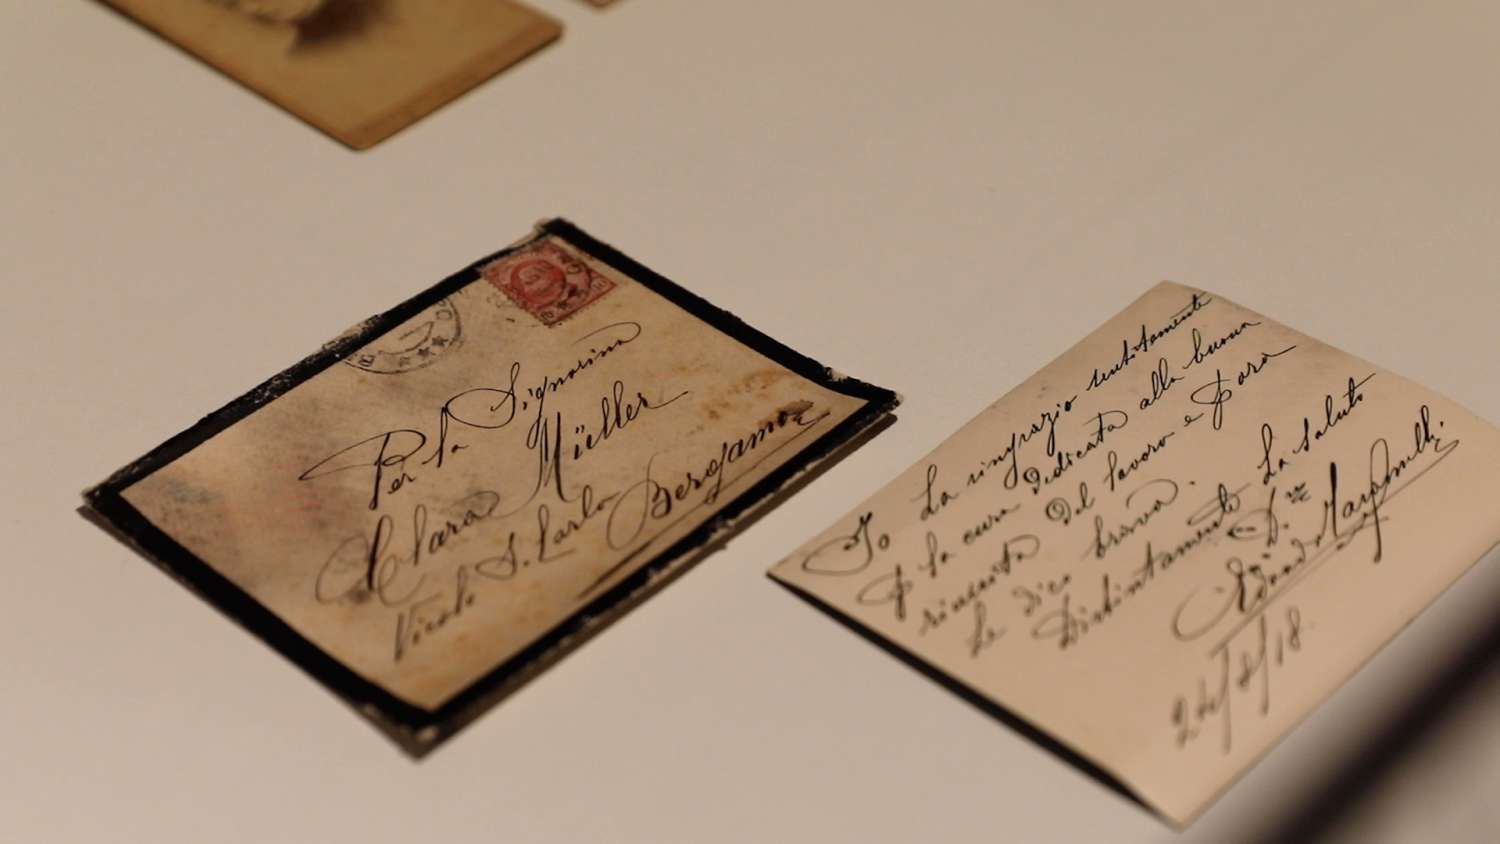 Per la Signorina
Clara Müller
Vicolo S. Carlo
Bergamo
Io La ringrazio sentitamente
p la cura dedicata alla buona
riuscita del lavoro e p ora
Le dico brava.
Distintamente La saluto
D.re
Edoardo
24/8/18.